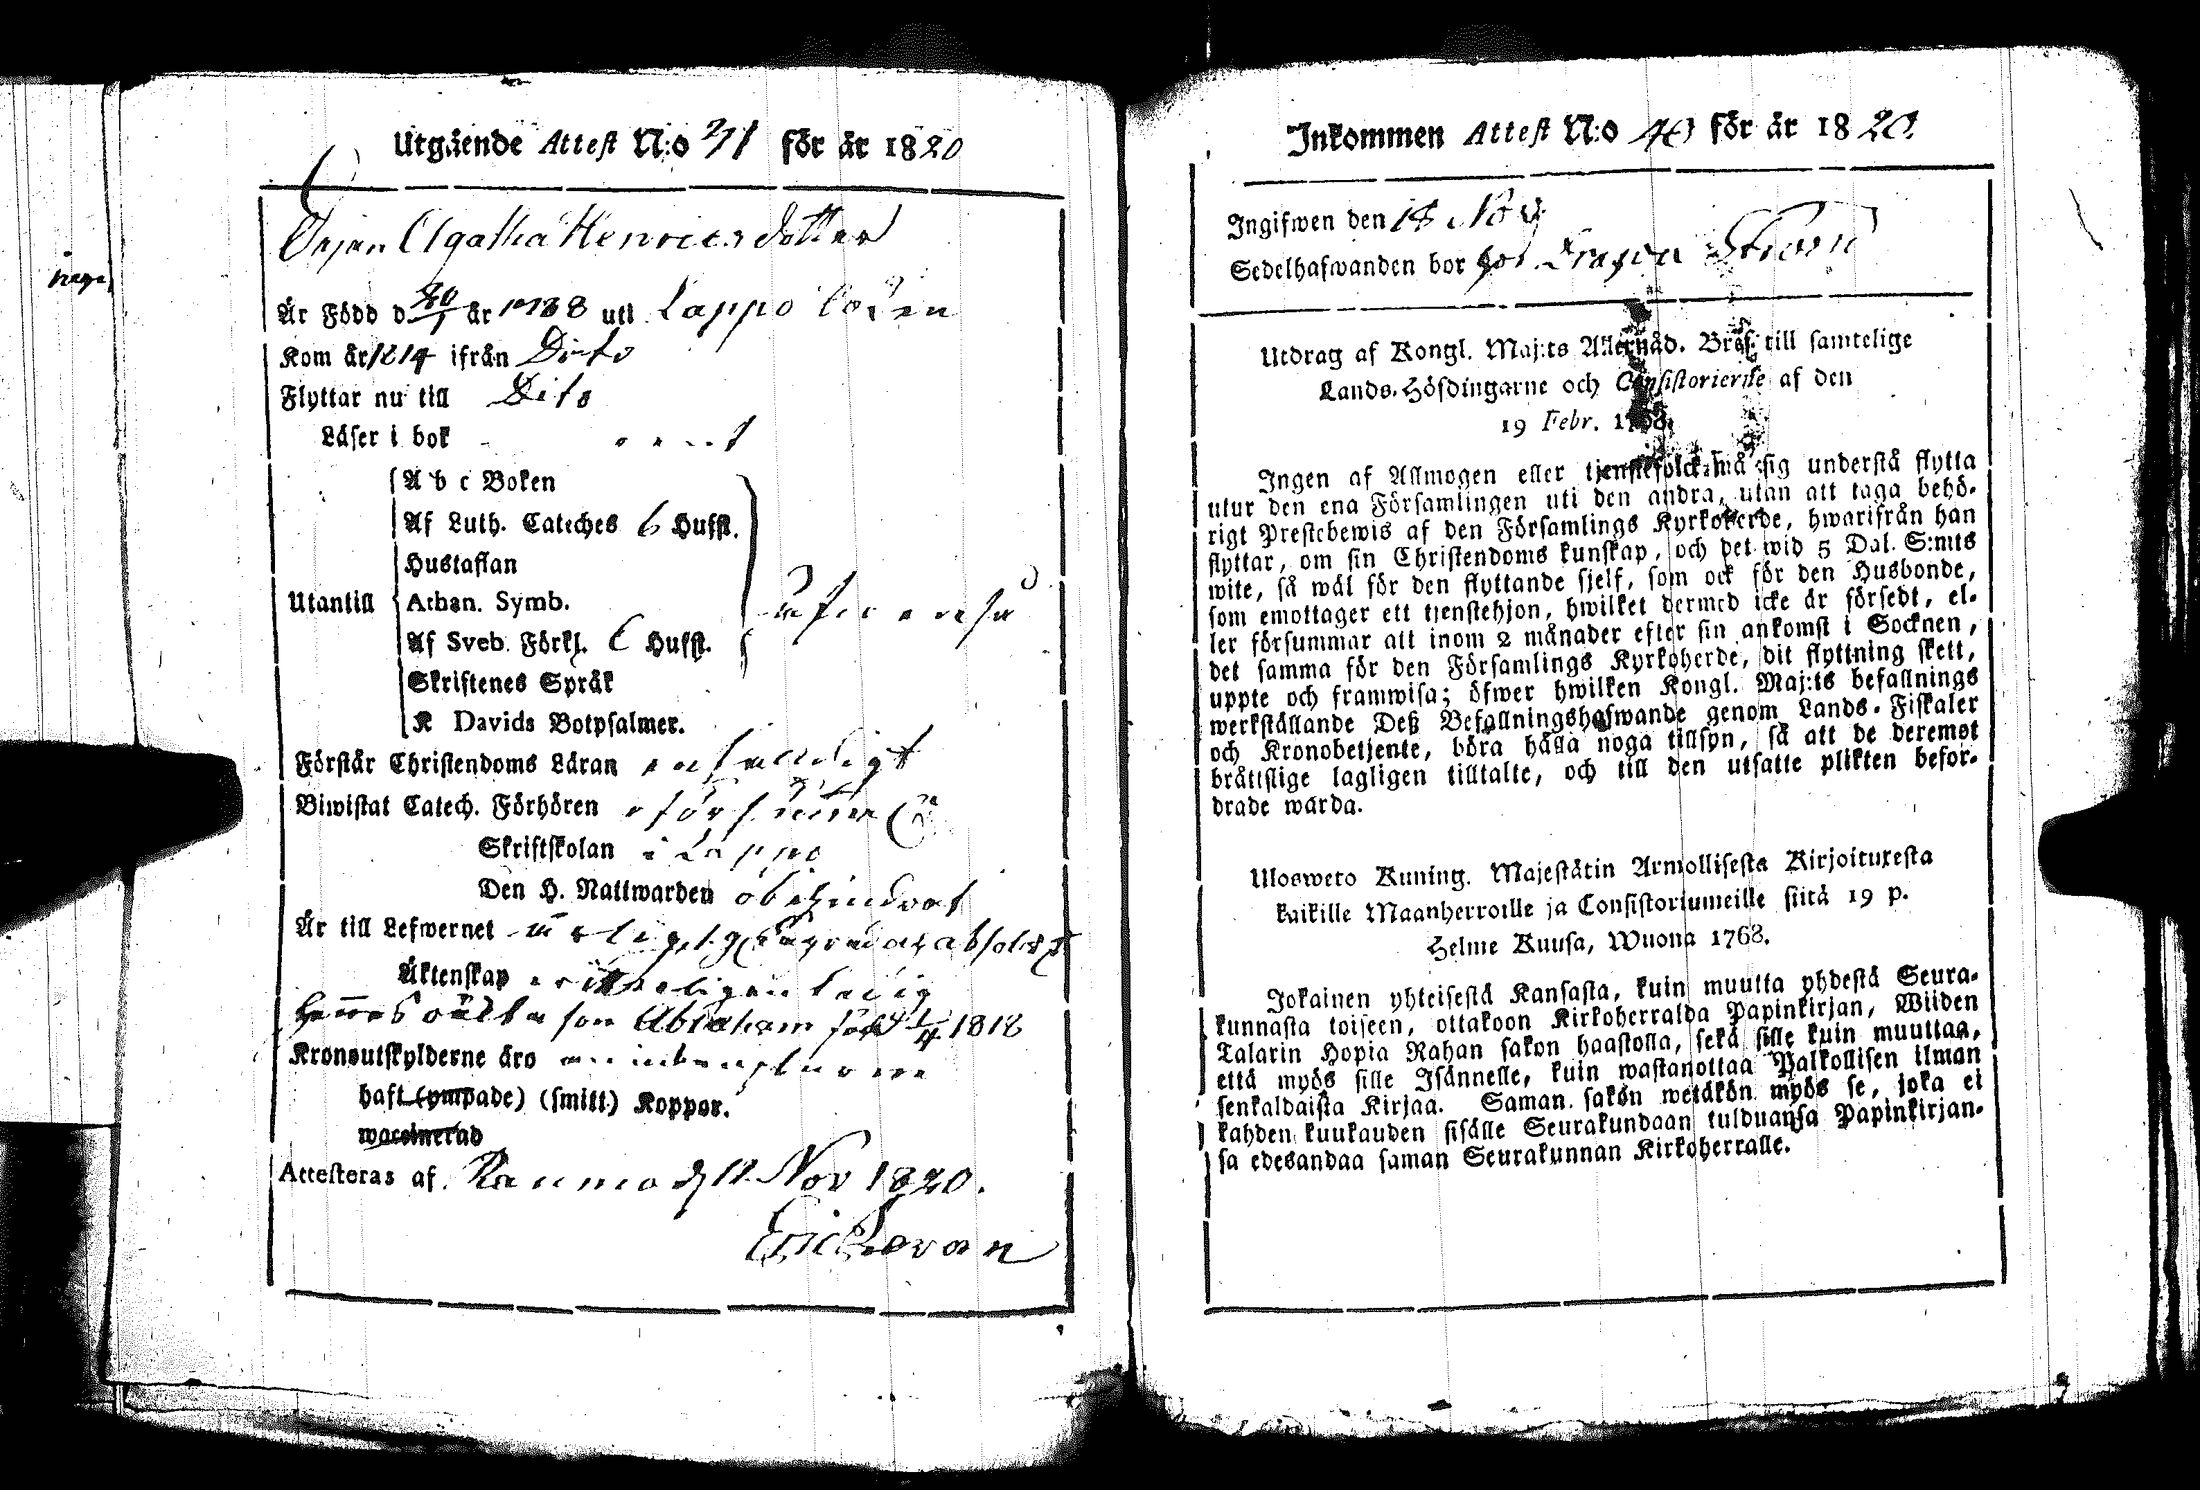 Utgående Attest N:o 271 för år 1820
Pigan Agatha Henricsdotter
Är Född d 20/1 år 1788 uti Lappo Socken
Kom år 1814 ifrån Dito
Flyttar nu till Dito
Läser i bok
A b c Boken
Af Luth. Cateches 6 Hufst.
Hustaflan
Utantill Athan. Symb.
Af Sveb. Förkl. 6 Hufst.
Skriftenes Språk
K Davids Botpsalmer.
Förstår Christendoms Läran enfaldigt
Biwistat Catech. Förhören
Skriftskolan i Lappo
Den H. Nattwarden obehindrat
Är till Lefwernet
Äktenskap ledig
Hennes oäkta son Abraham född 1/4 1818
Kronoutskylderne äro
haft (ympade) (smitt.) Koppor.
waccinerad
Attesteras af. Raumo d 11 Nov 1820.
Eric
hage
Inkommen Attest N:o 40 för år 1820.
Ingifwen den 18 Nov
Sedelhafwanden bor hos Dragon Ström
Utdrag af Kongl. Maj:ts Allernåd. Bref till samtelige
Lands-Höfdingarne och Consistorierne af den
19 Febr. 1768.
Ingen af Allmogen eller tjenstefolck må sig understå flytta
utur den ena Församlingen uti den andra, utan att taga behö-
rigt Prestebewis af den Församlings Kyrkoherde, hwarifrån han
flyttar, om sin Christendoms kunskap, och det wid 5 Dal. S:mts
wite, så wäl för den flyttande sjelf, som ock för den Husbonde,
som emottager ett tjenstehjon, hwilket dermed icke är försedt, el-
ler försummar att inom 2 månader efter sin ankomst i Socknen,
det samma för den Församlings Kyrkoherde, dit flyttning skett,
uppte och framwisa; öfwer hwilken Kongl. Maj:ts befallnings
werkställande Deß Befallningshafwande genom Lands-Fiskaler
och Kronobetjente, böra hålla noga tillsyn, så att de deremot
bråttslige lagligen tilltalte, och till den utsatte plikten befor-
drade warda.
Ulosweto Kuning. Majestätin Armollisesta Kirjoituxesta
kaikille Maanherroille ja Consistoriumeille siitä 19 p.
Helme Kuusa, Wuona 1768.
Jokainen yhteisestä Kansasta, kuin muutta yhdestä Seura-
kunnasta toiseen, ottakoon Kirkoherralda Papinkirjan, Wiiden
Talarin Hopia Rahan sakon haastolla, sekä sille kuin muuttaa,
että myös sille Isännelle, kuin wastanottaa Palkollisen ilman
senkaldaista Kirjaa. Saman sakon wetäkön myös se, joka ei
kahden kuukauden sisälle Seurakundaan tulduansa Papinkirjan-
sa edesandaa saman Seurakunnan Kirkoherralle.